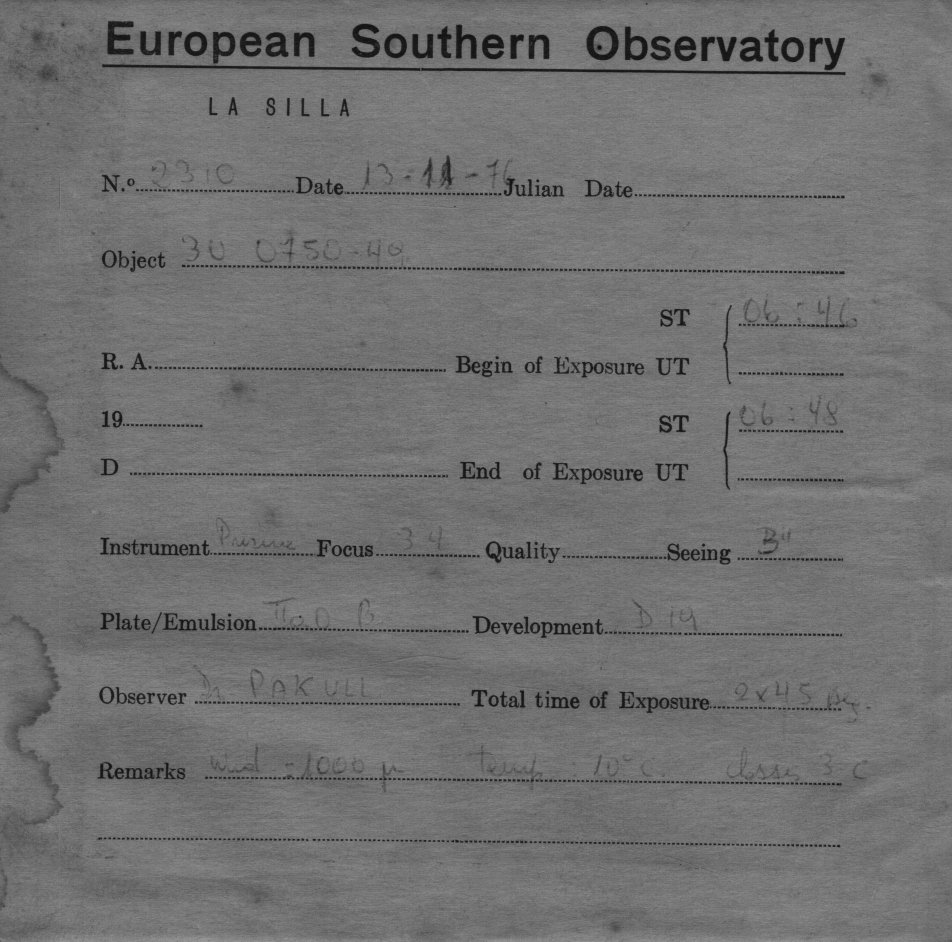 European Southern Observatory
LA SILLA
N.º 2310 Date 13-11-76 Julian Date
Object 3U 0750-49
ST 06:46
R. A. Begin of Exposure UT
19 ST 06:48
D End of Exposure UT
Instrument Focus 34 Quality Seeing 3"
Plate/Emulsion IIaO B Development D 19
Observer Dr PAKULL Total time of Exposure 2x45
Remarks wid = 1000 µ temp : 10°C. classe 3 C